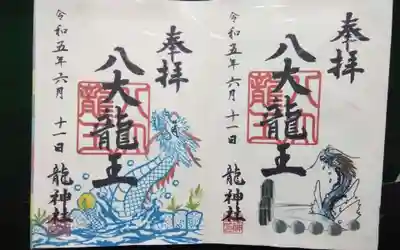 奉拝
八大龍王
令和五年六月十一日
龍神社
奉拝
八大龍王
令和五年六月十一日
龍神社